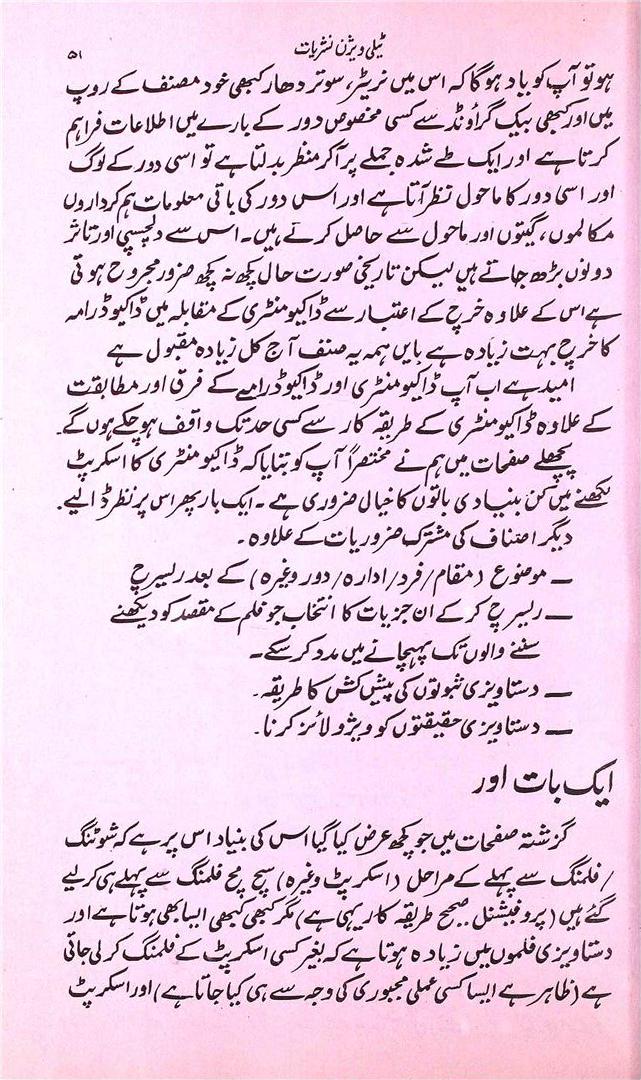 ٹیلی ویژن نشریات
۵۱
ہو تو آپ کو یاد ہوگا کہ اس میں نریٹر، سوتر دھار کبھی خود مصنف کے روپ
میں اور کبھی بیک گراؤنڈ سے کسی مخصوص دور کے بارے میں اطلاعات فراہم
کرتا ہے اور ایک طے شدہ جملے پر آ کر منظر بدلتا ہے تو اسی دور کے لوگ
اور اسی دور کا ماحول نظر آتا ہے اور اس دور کی باقی معلومات ہم کرداروں
مکالموں، گیتوں اور ماحول سے حاصل کرتے ہیں۔ اس سے دلچسپی اور تاثر
دونوں بڑھ جاتے ہیں لیکن تاریخی صورت حال کچھ نہ کچھ ضرور مجروح ہوتی
ہے اس کے علاوہ خرچ کے اعتبار سے ڈاکیومنٹری کے مقابلہ میں ڈاکیو ڈرامہ
کا خرچ بہت زیادہ ہے بایں ہمہ یہ صنف آج کل زیادہ مقبول ہے
امید ہے اب آپ ڈاکیومنٹری اور ڈاکیو ڈرامے کے فرق اور مطابقت
کے علاوہ ڈاکیومنٹری کے طریقہ کار سے کسی حد تک واقف ہو چکے ہوں گے۔
پچھلے صفحات میں ہم نے مختصراً آپ کو بتایا کہ ڈاکیومنٹری کا اسکرپٹ
لکھنے میں کن بنیادی باتوں کا خیال ضروری ہے ۔ ایک بار پھر اس پر نظر ڈالیے۔
دیگر اصناف کی مشترک ضروریات کے علاوہ ۔
— موضوع (مقام/فرد/ادارہ/دور وغیرہ) کے بعد ریسرچ
— ریسرچ کر کے ان جزیات کا انتخاب جو فلم کے مقصد کو دیکھنے
سننے والوں تک پہچانے میں مدد کر سکے۔
— دستاویزی ثبوتوں کی پیش کش کا طریقہ۔
— دستاویزی حقیقتوں کو ویژولائز کرنا۔
ایک بات اور
گزشتہ صفحات میں جو کچھ عرض کیا گیا اس کی بنیاد اس پر ہے کہ شوٹنگ
/فلمنگ سے پہلے کے مراحل (اسکرپٹ وغیرہ) سچ مچ فلمنگ سے پہلے ہی کر لیے
گئے ہیں (پروفیشنل صحیح طریقہ کار یہی ہے) مگر کبھی کبھی ایسا بھی ہوتا ہے اور
دستاویزی فلموں میں زیادہ ہوتا ہے کہ بغیر کسی اسکرپٹ کے فلمنگ کر لی جاتی
ہے (ظاہر ہے ایسا کسی عملی مجبوری کی وجہ سے ہی کیا جاتا ہے) اور اسکرپٹ